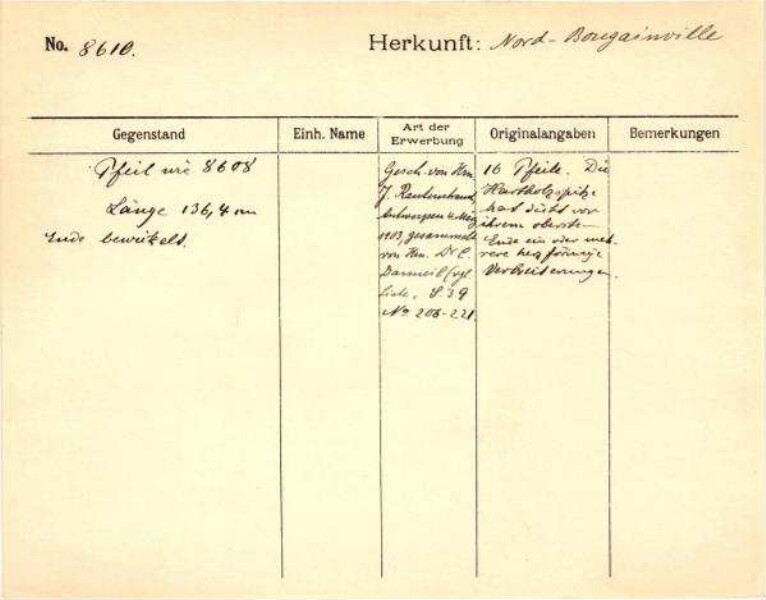 No. 8610.
Herkunft: Nord-Bougainville
Gegenstand
Einh. Name
Art der Erwerbung
Originalangaben
Bemerkungen
Pfeil wie 8608
Länge 136,4 cm
Ende bewickelt.
Gesch. von Hrn.
J. Rautenstrauch,
Antwerpen 4. März
1903, gesammelt
von Hrn. Dr C.
Danneil (vgl.
Liste, S. 39
No 206-221.
16 Pfeile. Die
Hartholzspitze
hat dicht vor
ihrem obersten
Ende ein oder meh-
rere förmige
Verbreiterungen.